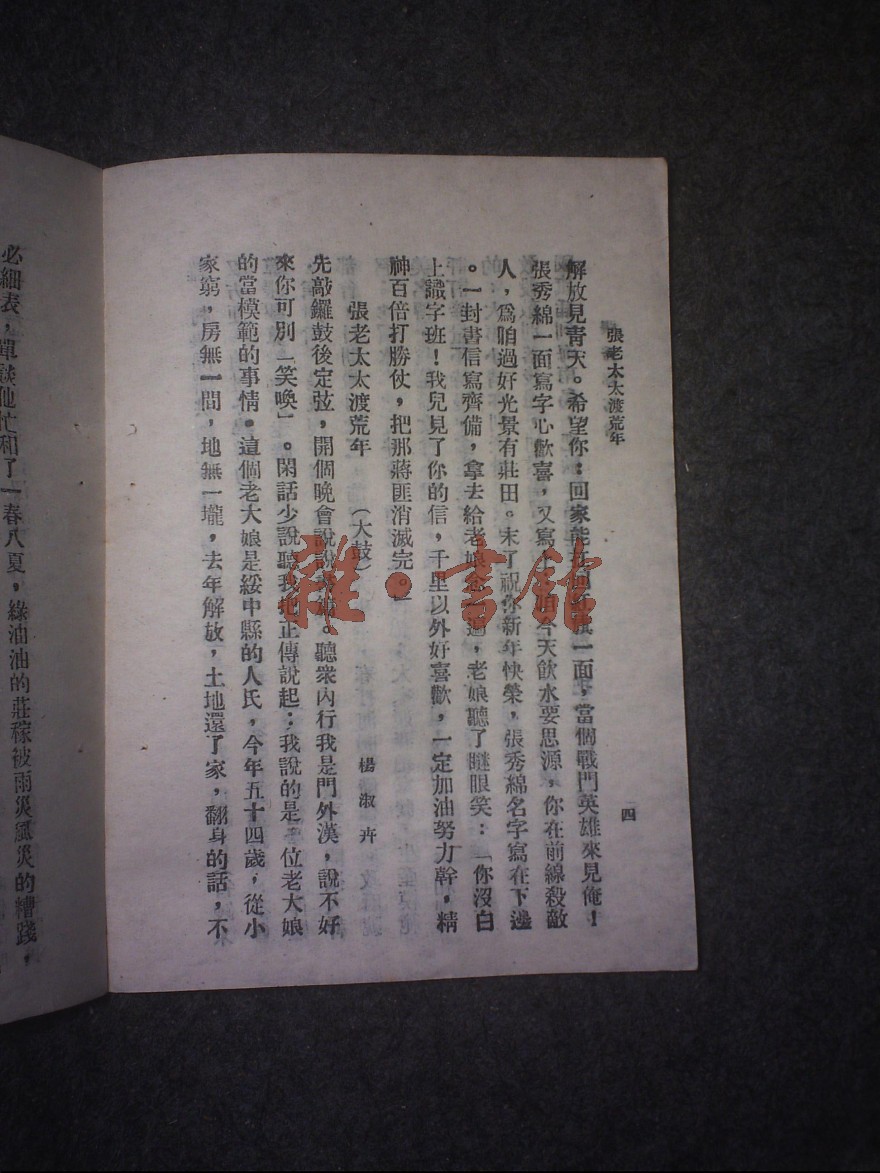 張老太太渡荒年
四
解放見青天。希望你：回家能一面，當個戰鬥英雄來見俺！
張秀綿一面寫字心歡喜，又寫上今天飲水要思源，你在前線殺敵
人，爲咱過好光景有莊田。末了祝你新年快榮，張秀綿名字寫在下邊
。一封書信寫齊備，拿去給老娘念一遍，老娘聽了瞇眼笑：「你沒白
上識字班！我兒見了你的信，千里以外好喜歡，一定加油努力幹，精
神百倍打勝仗，把那蔣匪消滅完。」
張老太太渡荒年 （大鼓） 楊淑卉
先敲鑼鼓後定弦，開個晚會說說。聽衆內行我是門外漢，說不好
來你可別「笑喚」。閑話少說聽我把正傳說起：我說的是一位老大娘
的當模範的事情。這個老大娘是綏中縣的人氏，今年五十四歲，從小
家窮，房無一間，地無一壠，去年解放，土地還了家，翻身的話，不
必細表，單談他忙和了一春八夏，綠油油的莊稼被雨災風災的糟踐，
雜·書館